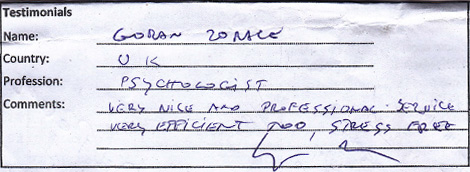 Testimonials
Name: GORAN
Country: UK
Profession: PSYCHOLOGIST
Comments: VERY NICE AND PROFESSIONAL SERVICE
VERY EFFICIENT TOO, STRESS FREE